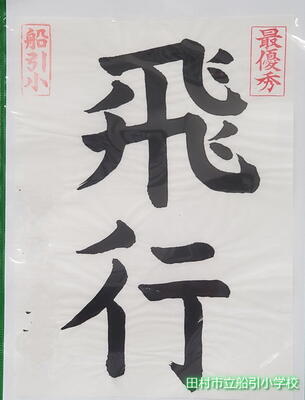 最優秀
飛行
船引小
田村市立船引小学校